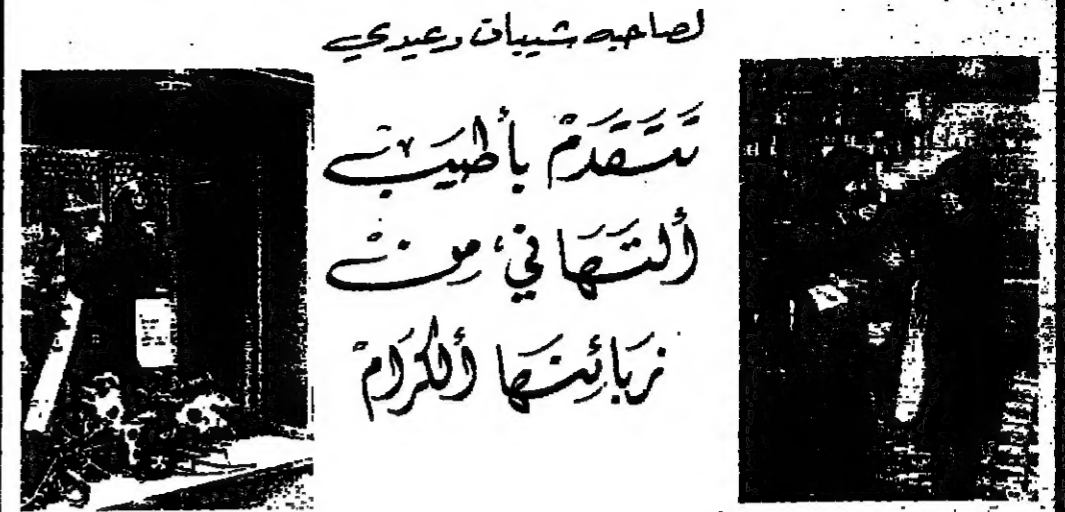 لصاحبه شيبان دعيدي
تَتَقَدَمْ بأطيَب
ألتَهَاني، من
زَبَائِنَهَا ألكرَامْ